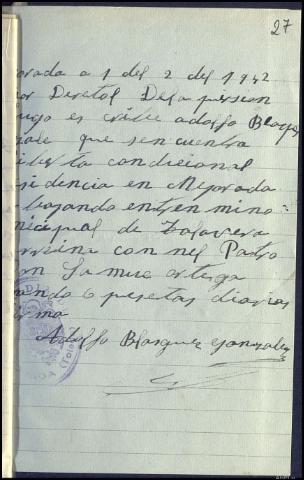 27
orada a 1 del 2 del 1942
or Diretol Dela prision
urgo es crive adolfo Blasq
zale que sen cuentra
iberta condicional
sidencia en Mejorada
bajando entren mino
nicipual de talavera
errina con nel Patro
on Samuc ortega
nando 6 pesetas diarias
irma
Adolffo Blasquez gonzalez